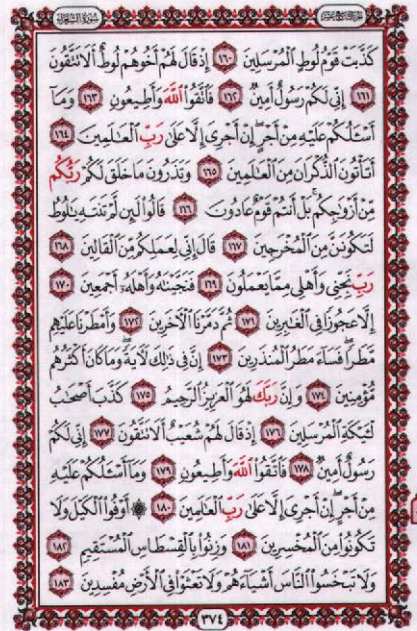 الجزء التاسع عشر سورة الشعراء
كَذَّبَتْ قَوْمُ لُوطٍ ٱلْمُرْسَلِينَ ١٦٠ إِذْ قَالَ لَهُمْ أَخُوهُمْ لُوطٌ أَلَا تَتَّقُونَ
١٦١ إِنِّي لَكُمْ رَسُولٌ أَمِينٌ ١٦٢ فَٱتَّقُوا۟ ٱللَّهَ وَأَطِيعُونِ ١٦٣ وَمَآ
أَسْـَٔلُكُمْ عَلَيْهِ مِنْ أَجْرٍ إِنْ أَجْرِىَ إِلَّا عَلَىٰ رَبِّ ٱلْعَـٰلَمِينَ ١٦٤
أَتَأْتُونَ ٱلذُّكْرَانَ مِنَ ٱلْعَـٰلَمِينَ ١٦٥ وَتَذَرُونَ مَا خَلَقَ لَكُمْ رَبُّكُم
مِّنْ أَزْوَٰجِكُم بَلْ أَنتُمْ قَوْمٌ عَادُونَ ١٦٦ قَالُوا۟ لَئِن لَّمْ تَنتَهِ يَـٰلُوطُ
لَتَكُونَنَّ مِنَ ٱلْمُخْرَجِينَ ١٦٧ قَالَ إِنِّى لِعَمَلِكُم مِّنَ ٱلْقَالِينَ ١٦٨
رَبِّ نَجِّنِى وَأَهْلِى مِمَّا يَعْمَلُونَ ١٦٩ فَنَجَّيْنَـٰهُ وَأَهْلَهُۥٓ أَجْمَعِينَ ١٧٠
إِلَّا عَجُوزًا فِى ٱلْغَـٰبِرِينَ ١٧١ ثُمَّ دَمَّرْنَا ٱلْـَٔاخَرِينَ ١٧٢ وَأَمْطَرْنَا عَلَيْهِم
مَّطَرًا فَسَآءَ مَطَرُ ٱلْمُنذَرِينَ ١٧٣ إِنَّ فِى ذَٰلِكَ لَـَٔايَةً وَمَا كَانَ أَكْثَرُهُم
مُّؤْمِنِينَ ١٧٤ وَإِنَّ رَبَّكَ لَهُوَ ٱلْعَزِيزُ ٱلرَّحِيمُ ١٧٥ كَذَّبَ أَصْحَـٰبُ
لْـَٔيْكَةِ ٱلْمُرْسَلِينَ ١٧٦ إِذْ قَالَ لَهُمْ شُعَيْبٌ أَلَا تَتَّقُونَ ١٧٧ إِنِّى لَكُمْ
رَسُولٌ أَمِينٌ ١٧٨ فَٱتَّقُوا۟ ٱللَّهَ وَأَطِيعُونِ ١٧٩ وَمَآ أَسْـَٔلُكُمْ عَلَيْهِ
مِنْ أَجْرٍ إِنْ أَجْرِىَ إِلَّا عَلَىٰ رَبِّ ٱلْعَـٰلَمِينَ ١٨٠ ۞ أَوْفُوا۟ ٱلْكَيْلَ وَلَا
تَكُونُوا۟ مِنَ ٱلْمُخْسِرِينَ ١٨١ وَزِنُوا۟ بِٱلْقِسْطَاسِ ٱلْمُسْتَقِيمِ ١٨٢
وَلَا تَبْخَسُوا۟ ٱلنَّاسَ أَشْيَآءَهُمْ وَلَا تَعْثَوْا۟ فِى ٱلْأَرْضِ مُفْسِدِينَ ١٨٣
٣٧٤